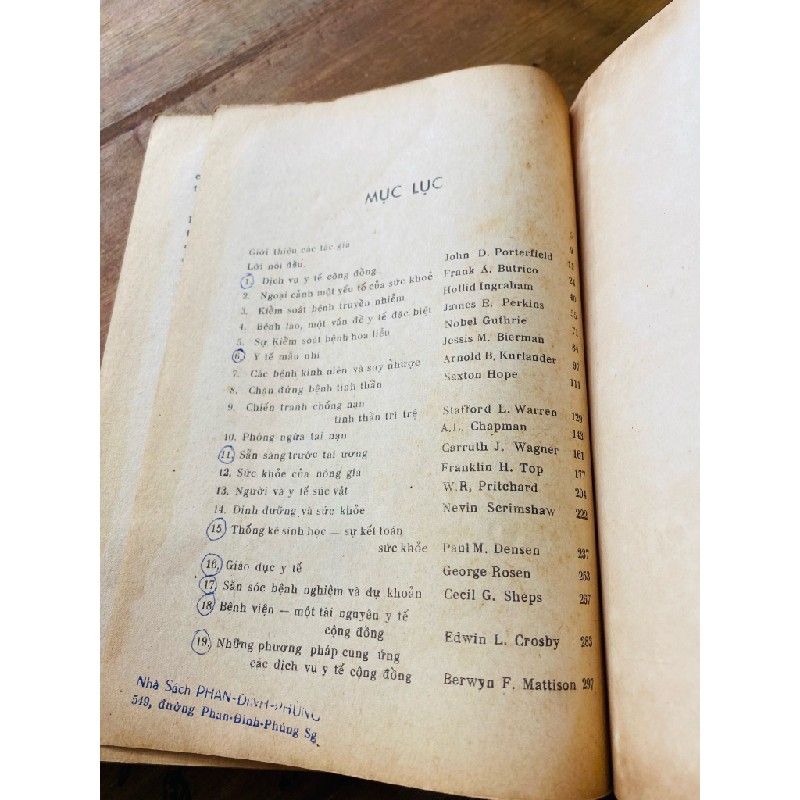 MỤC LỤC
Giới thiệu các tác giả 5
Lời nói đầu. 9
1. Dịch vụ y tế công đồng. John D. Porterfield 11
2. Ngoại cảnh một yếu tố của sức khoẻ Frank A. Butrico 24
3. Kiểm soát bệnh truyền nhiễm Hollid Ingraham 40
4. Bênh lao, một vấn đề y tế đặc biệt James E. Perkins 55
5. Sự Kiểm soát bệnh hoa liễu Nobel Guthrie 71
6. Y tế mẫu nhi Jessis M. Bierman 84
7. Các bệnh kinh niên và suy nhược Arnold B, Kurlander 97
8. Chận đứng bệnh tinh thần Saxton Hope 111
9. Chiến tranh chống nạn
tinh thần trì trệ Stafford L. Warren 129
10. Phòng ngừa tai nạn A.L. Chapman 143
11. Sẵn sàng trước tai ương Carruth J. Wagner 161
12. Sức khỏe của nông gia Franklin H. Top 177
13. Người và y tế súc vật W.R, Pritchard 204
14. Dinh dưỡng và sức khỏe Nevin Scrimshaw 222
15. Thống kê sinh học — sự kết toán
sức khỏe Paul M. Densen 237
16. Giáo dục y tế George Rosen 253
17. Săn sóc bệnh nghiệm và dự khoản Cecil G. Sheps 257
18. Bênh viện — một tài nguyên y tế
cộng đồng Edwin L. Crosby 283
19. Những phương pháp cung ứng
các dịch vụ y tế cộng đồng Berwyn F. Mattison 297
Nhà Sách PHAN-ĐÌNH-PHÙNG
549, đường Phan-Đình-Phùng Sg